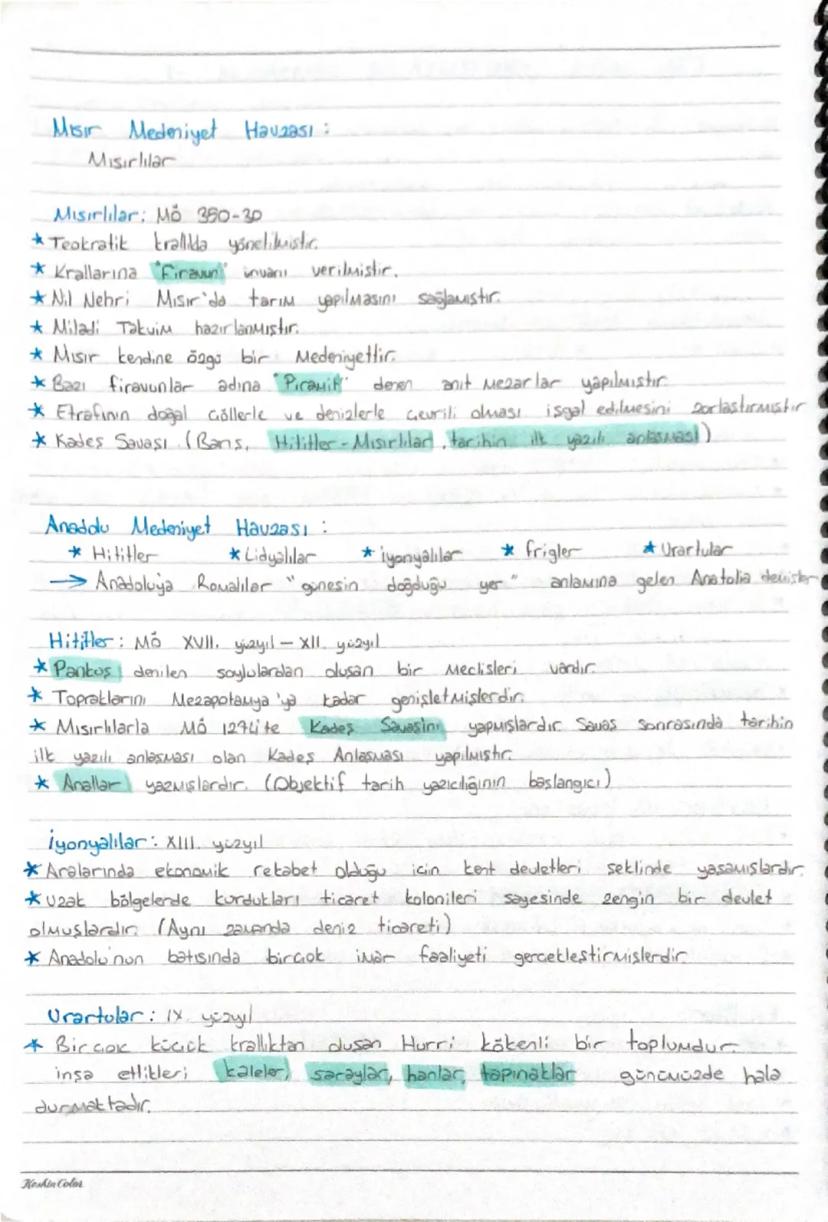 Mısır Medeniyet Havzası :
Mısırlılar
Mısırlılar: MÖ 350-30
* Teokratik krallıkla yönetilmiştir.
* Krallarına "Firavun" ünvanı verilmiştir.
* Nil Nehri Mısır'da tarım yapılmasını sağlamıştır.
* Miladi Takvim hazırlanmıştır.
* Mısır kendine özgü bir Medeniyettir.
* Bazı firavunlar adına "Piramit" denen anıt mezarlar yapılmıştır.
* Etrafının doğal çöllerle ve denizlerle çevrili olması işgal edilmesini zorlaştırmıştır
* Kadeş Savaşı (Barış, Hititler-Mısırlılar, tarihin ilk yazılı anlaşması)
Anadolu Medeniyet Havzası :
* Hititler * Lidyalılar * İyonyalılar * frigler * Urartular
→ Anadoluya Romalılar "güneşin doğduğu yer" anlamına gelen Anatolia demişler
Hititler : MÖ XVII. yüzyıl - XII. yüzyıl
* Pankuş denilen soylulardan oluşan bir Meclisleri vardır.
* Topraklarını Mezapotamya'ya kadar genişletmişlerdir.
* Mısırlılarla MÖ 1274'te Kadeş Savaşını yapmışlardır. Savaş sonrasında tarihin
ilk yazılı anlaşması olan Kadeş Anlaşması yapılmıştır.
* Anallar yazmışlardır. (Objektif tarih yazıcılığının başlangıcı)
İyonyalılar : XIII. yüzyıl
* Aralarında ekonomik rekabet olduğu için kent devletleri şeklinde yaşamışlardır.
* Uzak bölgelerde kurdukları ticaret kolonileri sayesinde zengin bir devlet
olmuşlardır. (Aynı zamanda deniz ticareti)
* Anadolu'nun batısında birçok imar faaliyeti gerçekleştirmişlerdir.
Urartular : IX. yüzyıl
* Birçok küçük krallıktan oluşan Hurri kökenli bir toplumdur.
inşa ettikleri kaleler, saraylar, hanlar, tapınaklar günümüzde hala
durmaktadır.
Keskin Color